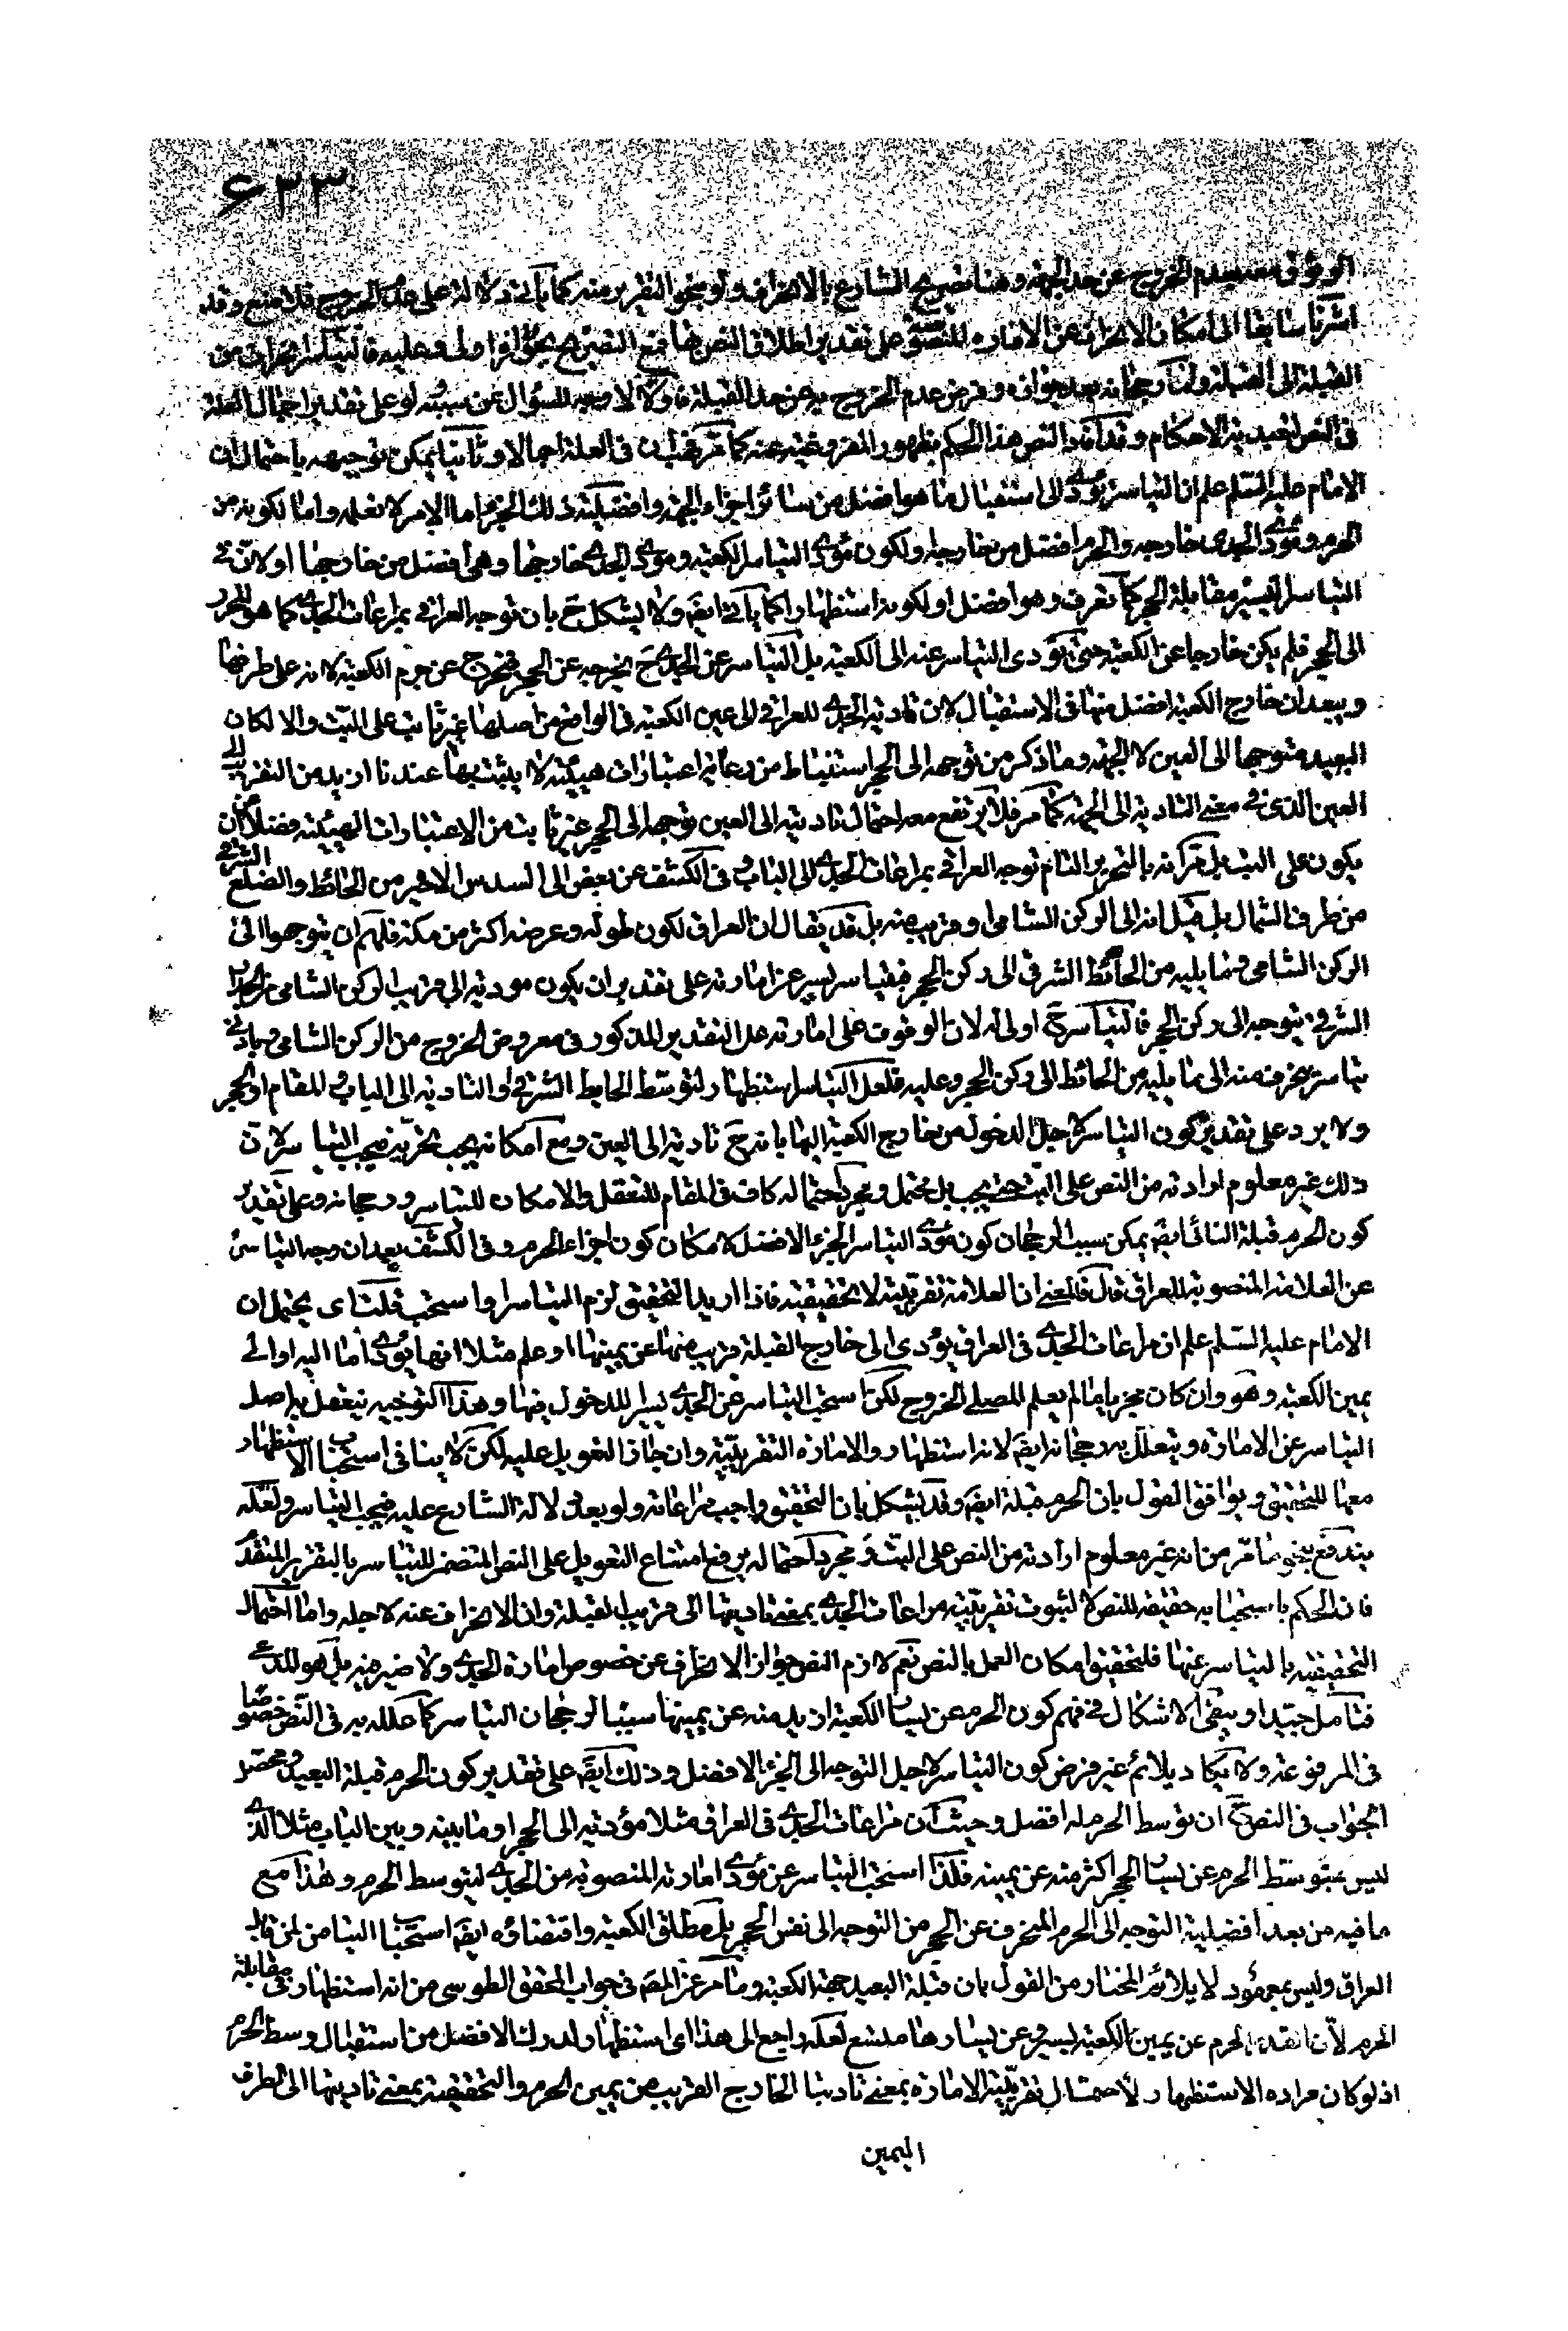 ٦٣٣
الوثوق معه بعدم الخروج عن حد الجهة وهنا تصريح الشارع بالانحراف ولو بنحو التقرير منه كما يأتي دلالة على عدم الخروج فلا منع وقد
اشرنا سابقا الى امكان الانحراف عن الامارة المنصوصة على تقدير اطلاق النص بها فمع التصريح بجوازه اولى وعليه فالتياسر انحراف من
القبلة الى القبلة واما رجحانه بعد جوازه وفرض عدم الخروج به عن حد القبلة فاولا لا وجه للسؤال عن سببه لو على تقدير اجمال العلة
في النص لتعبدية الاحكام وقد افاد النص هذا الحكم بظهور المفروغية عنه كما مر فيه وان في العلة اجمالا وثانيا يمكن توجيهه باحتمال ان
الامام عليه السلم علم ان التياسر يؤدي الى استقبال ما هو افضل من سائر اجزاء الجهة وافضلية ذلك الجزء اما لامر لا نعلمه واما لكونه من
الحرم ومؤدى الجدي خارجه والحرم افضل من خارجه ولكون مؤدى التياسر الكعبة ومؤدى الجدي خارجها وهي افضل من خارجها او لان في
التياسر اليسير مقابلة الحجر كما تعرف وهو افضل او لكونه استظهارا كما يأتي ايضا ولا يشكل ح بان توجه العراقي بمراعات الجدي كما هو المحرر
الى الحجر فلم يكن خارجا عن الكعبة حتى يؤدى التياسر عنه الى الكعبة بل التياسر عن الجدي ح يخرجه عن الحجر فيخرج عن جرم الكعبة لانه على طرفها
ويبعد ان خارج الكعبة افضل منها في الاستقبال لان تادية الجدي للعراقي الى عين الكعبة في الواقع من اصلها غير ثابت على البت والا لكان
البعيد متوجها الى العين لا الجهة وما ذكر من توجهه الى الحجر استنباط من رعاية اعتبارات هيئية لا يثبت بها عندنا ازيد من التقريب الى
العين الذى في معنى التادية الى الجهة كما مر فلا يرتفع معه احتمال تاديته الى العين توجها الى الحجر غير ثابت من الاعتبارات الهيئية فضلا عن ان
يكون على البت بل مر انه بالتحرير التام توجه العراقي بمراعات الجدي الى الباب وفي الكشف عن بعض الى السدس الاخير من الحائط والضلع الشرقي
من طرف الشمال بل قيل انه الى الركن الشامي او قريب منه بل قد يقال ان العراق لكون طوله وعرضه اكثر من مكة فلهم ان يتوجهوا الى
الركن الشامي ومما يليه من الحائط الشرقي الى ركن الحجر فبتياسر يسير عن امارته على تقدير ان يكون مودية الى قريب الركن الشامي من الحائط
الشرقي يتوجه الى ركن الحجر فالتياسر ح اولى له لان الوقوف على امارته على التقدير المذكور في معروض الخروج من الركن الشامي وبادنى
تياسر ينحرف منه الى ما يليه من الحائط الى ركن الحجر وعليه فلعل التياسر استظهار لتوسط الحائط الشرقي او التادية الى الباب والمقام او الحجر
ولا يرد على تقدير كون التياسر لاجل الدخول من خارج الكعبة اليها بانه ح تادية الى العين ومع امكانه يجب تحريه فيجب التياسر لان
ذلك غير معلوم ارادته من النص على البت حتى يجب بل محتمل ومجرد احتماله كاف في المقام للتعقل والامكان للتياسر ورجحانه وعلى تقدير
كون الحرم قبلة النائي ايضا يمكن سببا لرجحان كون مؤدى التياسر الجزء الافضل لامكان كون اجزاء الحرم وفي الكشف بعد ان وجه التياسر
عن العلامة المنصوبة للعراق قال فالمعنى ان العلامة تقريبية لا تحقيقية فاذا اريد التحقيق لزم التياسر او استحب قلت اى يحتمل ان
الامام عليه السلم علم ان مراعات الجدي في العراق يؤدى الى خارج القبلة قريب منها عن يمينها او علم مثلا انها يؤدى اما اليه او الى
يمين الكعبة وهو وان كان مجزيا ما لم يعلم المصلى الخروج لكن استحب التياسر عن الجدي يسيرا للدخول فيها وهذا التوجيه يتعقل به اصل
التياسر عن الامارة ويتعلل به رجحانه ايضا لانه استظهار والامارة التقريبية وان جاز التعويل عليه لكن لا ينافى استحباب الاستظهار
معها للتحقيق ويوافق القول بان الحرم قبلة ايضا وقد يشكل بان التحقيق واجب مراعاته ولو بعد دلالة الشارع عليه فيجب التياسر ولعله
يندفع بنحو ما مر من انه غير معلوم ارادته من النص على البت ومجرد احتماله يرفع امتناع التعويل على النص المتضمن للتياسر بالتقرير المتقدم
فان الحكم باستحبابه حقيقة للنص لا لثبوت تقريبية مراعات الجدي بمعنى تاديتها الى قريب القبلة وان الانحراف عنه لاجله واما احتمال
التحقيقية بالتياسر عنها فلتحقيق امكان العمل بالنص نعم لازم النص جواز الانحراف عن خصوص امارة الجدي ولا ضير فيه بل هو المدعى
فتامل جيدا ويبقى الاشكال في فهم كون الحرم عن يسار الكعبة ازيد منه عن يمينها سببا لرجحان التياسر كما علله به في النص خصوصا
في المرفوعة ولا يكاد يلائم غير فرض كون التياسر لاجل التوجه الى الجزء الافضل وذلك ايضا على تقدير كون الحرم قبلة البعيد ومحصل
الجواب في النص ح ان توسط الحرم له افضل وحيث ان مراعات الجدي في العراق مثلا مؤدية الى الحجر او ما بينه وبين الباب مثلا الذي
ليس بمتوسط الحرم عن يسار الحجر اكثر منه عن يمينه فلذا استحب التياسر عن مؤدى امارته المنصوبة من الجدي ليتوسط الحرم وهذا مع
ما فيه من بعد افضلية التوجه الى الحرم المنحرف عن الحجر من التوجه الى نفس الحجر بل مطلق الكعبة واقتضائه ايضا استحباب التيامن لمن قابل
العراقي وليس بمعهود لا يلائم المختار من القول بان قبلة البعيد جهة الكعبة وما مر عن المص في جواب المحقق الطوسي من انه استظهار في مقابلة
الحرم لان قدر الحرم عن يمين الكعبة يسير وعن يسارها متسع لعله راجع الى هذا اى استظهار لدرك الافضل من استقبال وسط الحرم
اذ لو كان مراده الاستظهار لاحتمال تقريبية الامارة بمعنى تاديتها الخارج القريب من يمين الحرم والتحقيقية بمعنى تاديتها الى طرف
اليمين